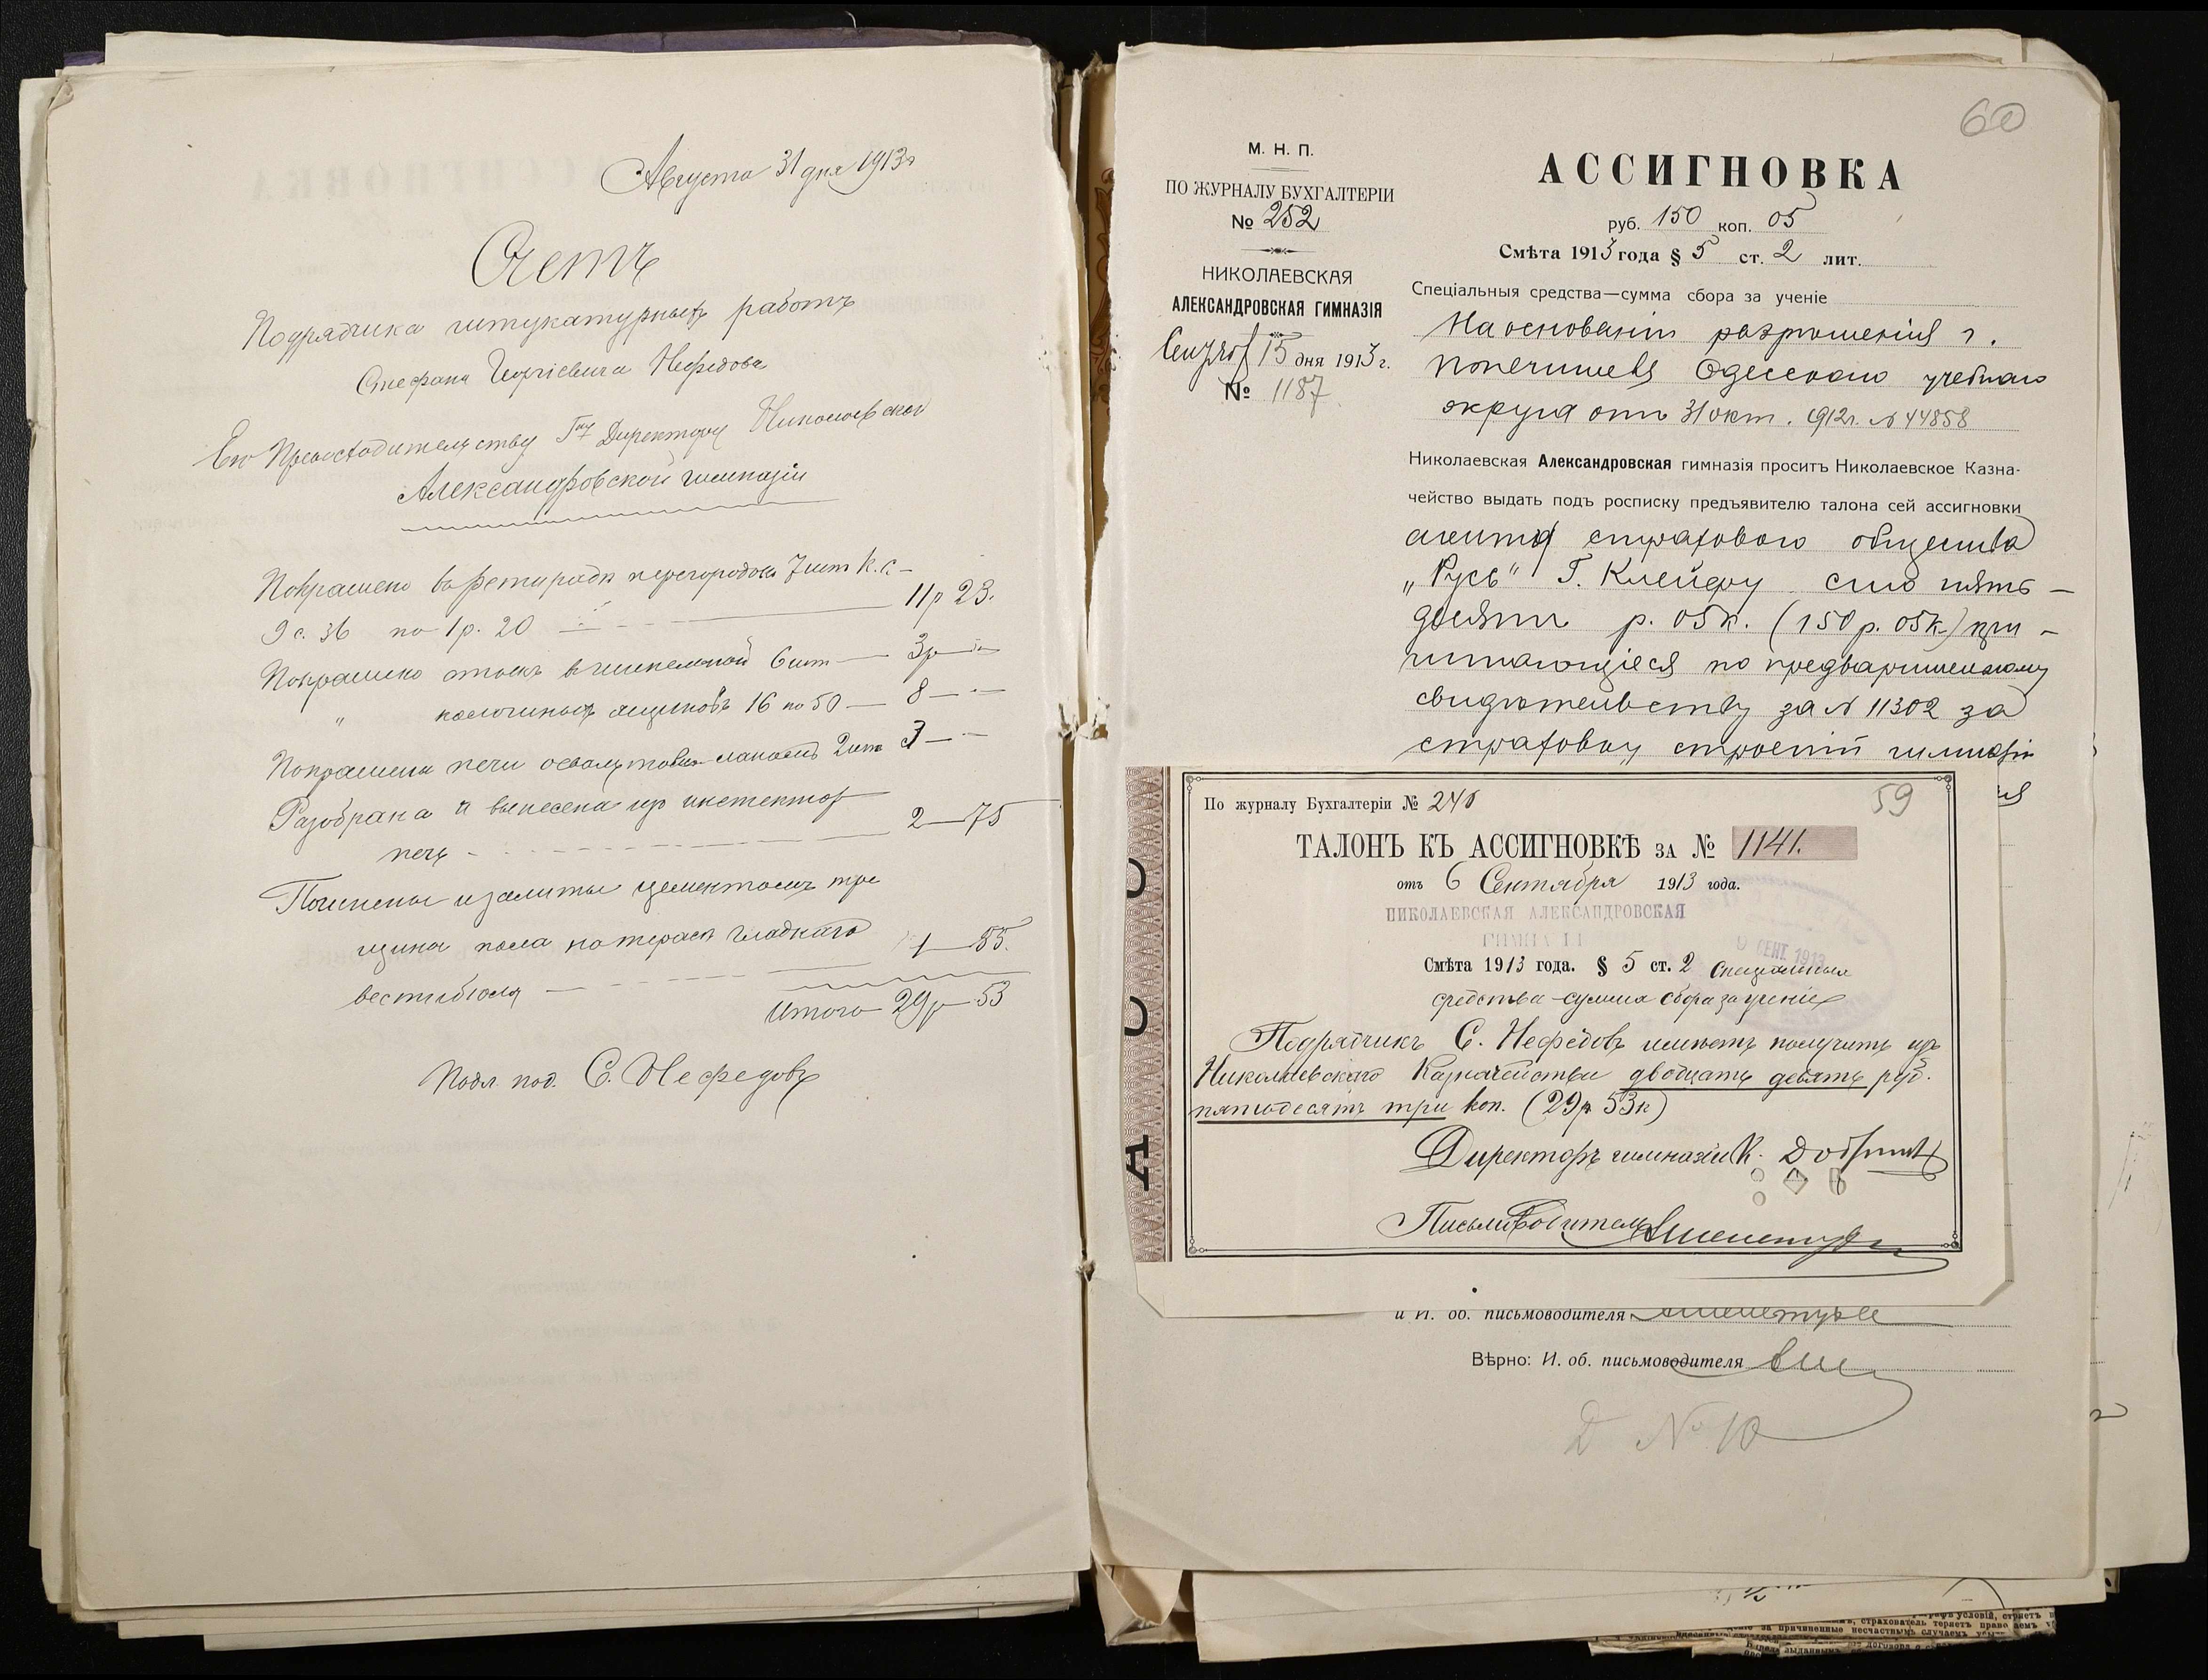 Августа 31 дня 1913 г
Счетъ
Подрядчика штукатурныхъ работъ
Стефана Георгіевича Нефедова
Его Превосходительству Гну Директору Николаевской
Александровской гимназіи
Покрашено въ ретирадѣ перегородокъ 7 шт к.с.
9 с. 36 по 1 р. 20 — 11 р 23.
Покрашено в шинельной 6 шт — 3 р —
" ящиковъ 16 по 50 — 8 — " —
Покрашены печи лакомъ 2 шт 3 — " —
Разобрана и вынесена изъ
печь — 2 — 75
Починены и залиты цементомъ тре
щины пола на терасѣ гладкаго
вестибюля — 1 — 55.
Итого 29 р — 53
Подл. под. С. Нефедовъ
60
М. Н. П.
ПО ЖУРНАЛУ БУХГАЛТЕРІИ
№ 252
НИКОЛАЕВСКАЯ
АЛЕКСАНДРОВСКАЯ ГИМНАЗІЯ
15 дня 1913 г.
№ 1187
АССИГНОВКА
руб. 150 коп. 05
Смѣта 1913 года § 5 ст. 2 лит.
Спеціальныя средства—сумма сбора за ученіе
На основаніи разрѣшенія г.
Попечителя Одесскаго учебнаго
округа отъ 31 окт. 1912 г. № 44858
Николаевская Александровская гимназія проситъ Николаевское Казна-
чейство выдать подъ росписку предъявителю талона сей ассигновки
агенту страхового общества
„Русь" Г. Клейфу сто пять-
десятъ р. 05 к. (150 р. 05 к.) при-
читающіеся по предварительному
свидѣтельству за № 11302 за
страховку строеній гимназіи
По журналу Бухгалтеріи № 246
59
ТАЛОНЪ КЪ АССИГНОВКѢ ЗА № 1141.
отъ 6 Сентября 1913 года.
НИКОЛАЕВСКАЯ АЛЕКСАНДРОВСКАЯ
СЕНТ. 1913
Смѣта 1913 года. § 5 ст. 2 Спеціальныя
средства – сумма сбора за ученіе
Подрядчикъ С. Нефедовъ имѣетъ получить изъ
Николаевскаго Казначейства двадцать девять руб.
пятьдесятъ три коп. (29 р 53 к)
Директоръ гимназіи К.
Письмоводитель
и И. об. письмоводителя
Вѣрно: И. об. письмоводителя
Д № 10